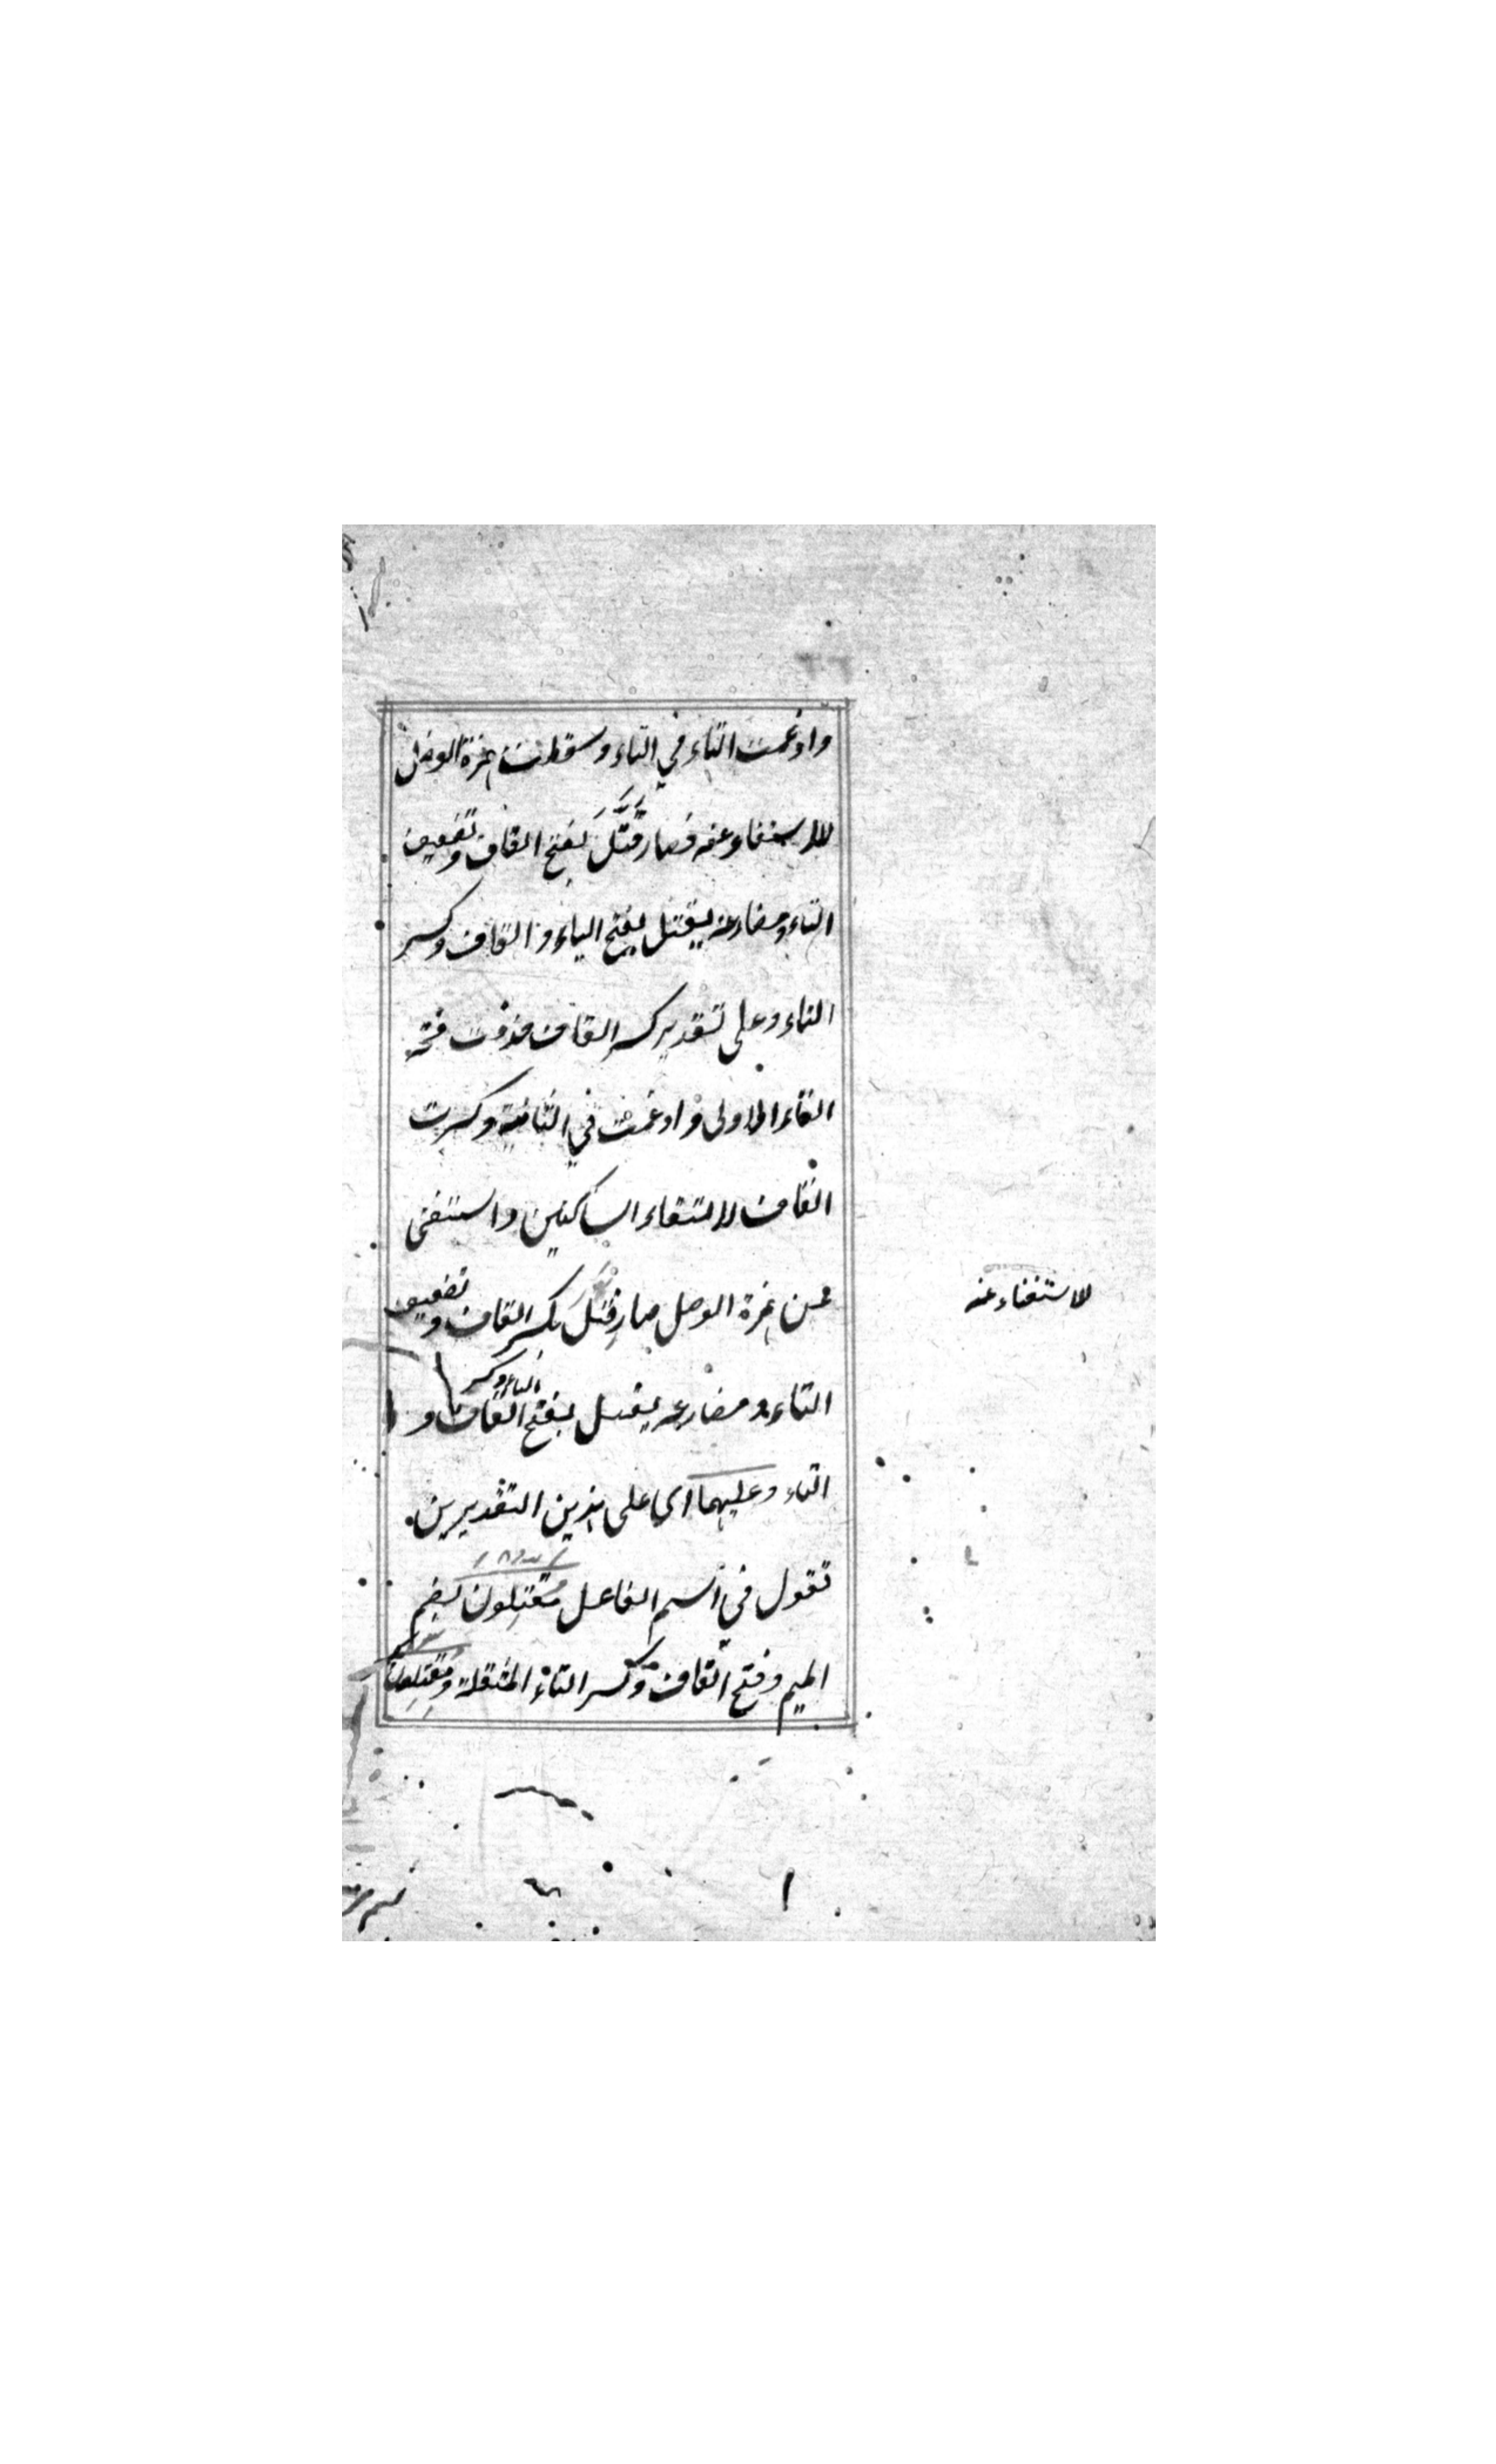 وادغمت التاء في التاء وسقطت همزة الوصل
للاستغناء عنه فصار قَتَّلَ بفتح القاف وتضعيف
التاء ومضارعه يقتل بفتح الياء والقاف وكسر
التاء وعلى تقدير كسر القاف حذفت فتحة
التاء الاولى وادغمت في الثانية وكسرت
القاف لالتقاء الساكنين واستغنى
للاستغناء عنه
عن همزة الوصل صار قِتَّل بكسر القاف وتضعيف
التاء وكسر
التاء ومضارعه يقتل بفتح القاف و
التاء وعليهما اي على هذين التقديرين
تقول في اسم الفاعل مقتلون بضم
الميم وفتح القاف وكسر التاء المثقلة ومقتلون